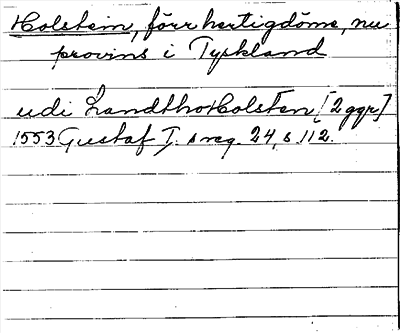 Holstein, förr hertigdöme, nu
provins i Tyskland
udi Landtho Holsten [2 ggr]
1553 Gustaf I. s reg. 24, s. 112.